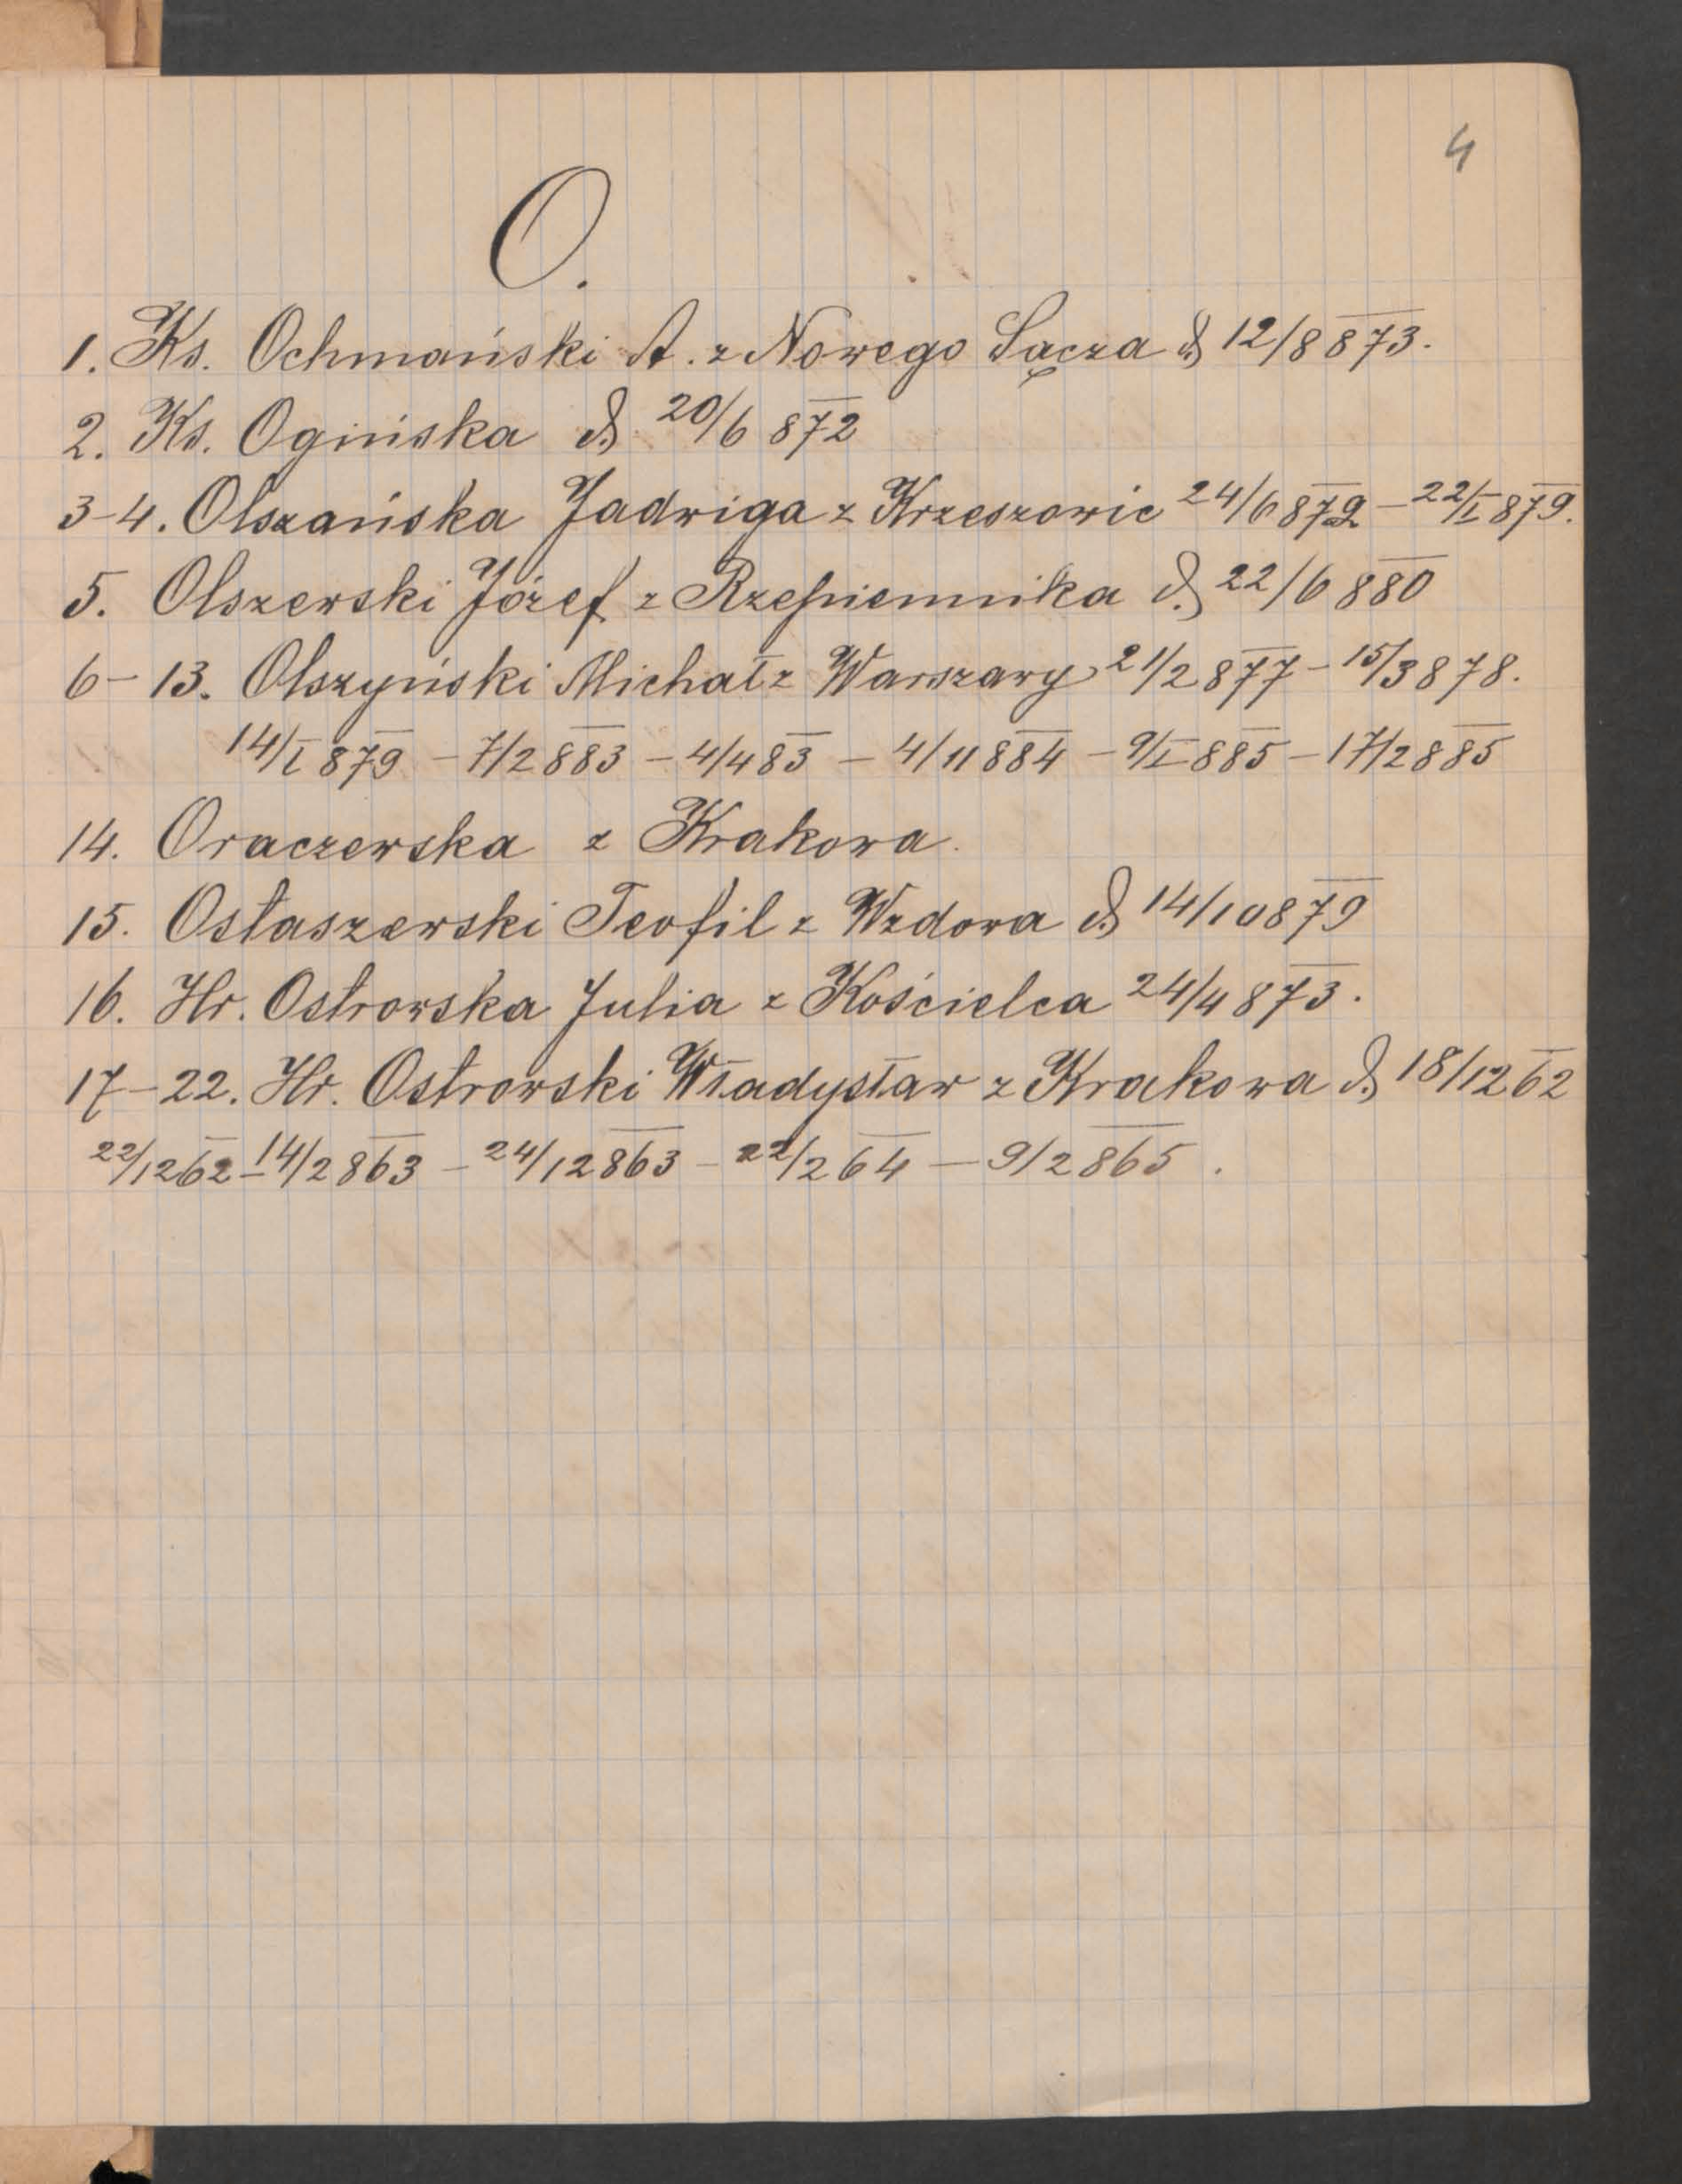 4
O.
1. Ks. Ochmański A. z Nowego Sącza d. 12/8 873.
2. Ks. Ogińska d. 20/6 872
3-4. Olszańska Jadwiga z Krzeszowic 24/6 872 - 22/I 879.
5. Olszewski Józef z Rzepiennika d. 22/6 880
6-13. Olszyński Michał z Warszawy 21/2 877 - 15/3 878.
14/I 879 - 7/2 883 - 4/4 83 - 4/11 884 - 9/I 885 - 17/2 885
14. Oraczewska z Krakowa.
15. Ostaszewski Teofil z Wzdowa d. 14/10 879
16. Hr. Ostrowska Julia z Kościelca 24/4 873.
17-22. Hr. Ostrowski Władysław z Krakowa d. 18/12 62
22/12 62 - 14/2 863 - 24/12 863 - 22/2 64 - 9/2 865.